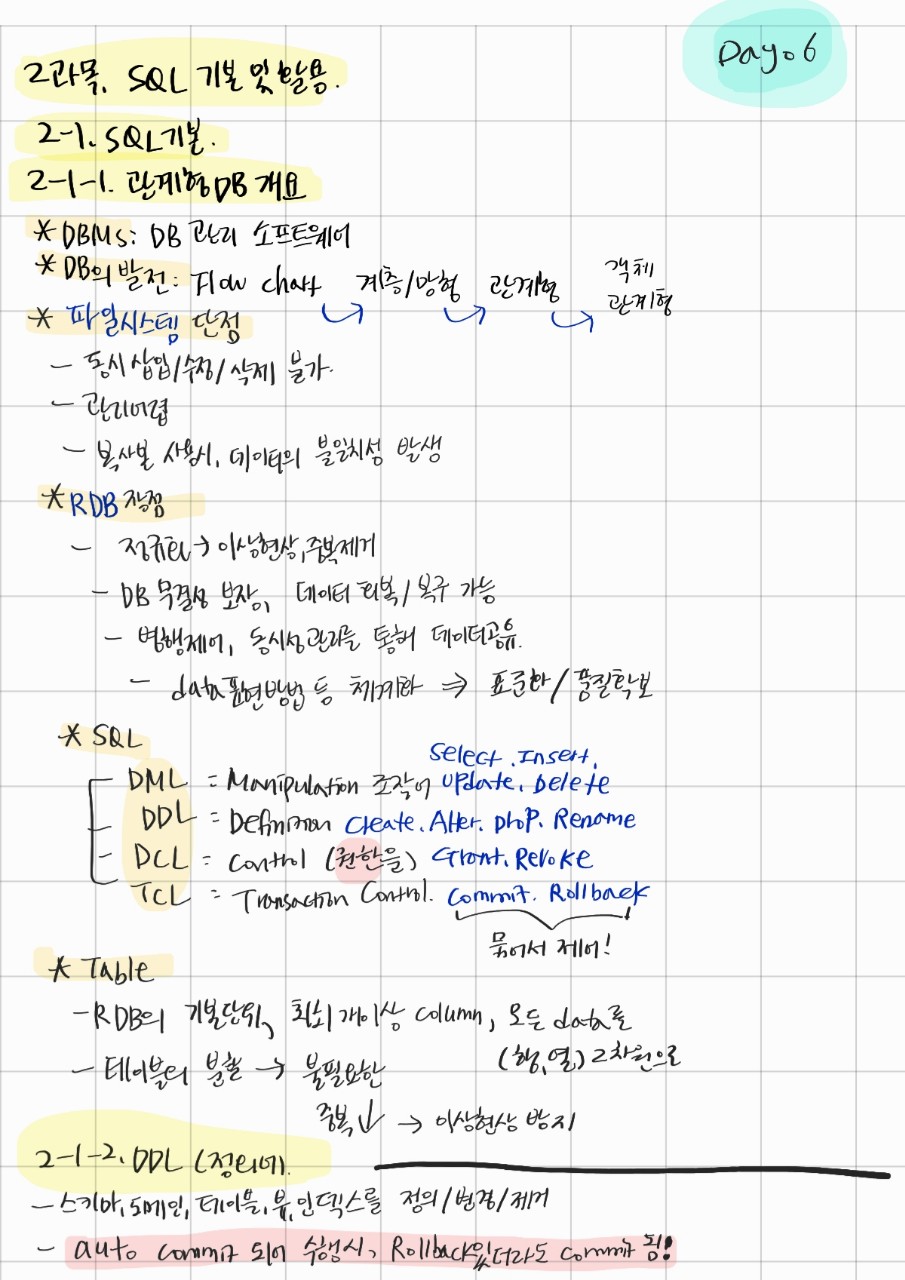 Day. 6
2과목. SQL 기본 및 활용.
2-1. SQL기본.
2-1-1. 관계형DB 개요
* DBMS: DB 관리 소프트웨어
* DB의 발전: Flow chart 계층/망형 관계형 객체 관계형
* 파일시스템 단점
- 동시 삽입/수정/삭제 불가.
- 관리어렵
- 복사본 사용시, 데이터의 불일치성 발생
* RDB 장점
- 정규화 → 이상현상, 중복제거
- DB 무결성 보장, 데이터 회복/복구 가능
- 병행제어, 동시성관리를 통해 데이터공유.
- data표현방법 등 체계화 ⇒ 표준화/품질확보
* SQL
Select. Insert.
DML = Manipulation 조작어 Update. Delete
DDL = Definition Create. Alter. Drop. Rename
DCL = Control (권한을) Grant. Revoke
TCL = Transaction Control. Commit. Rollback
묶어서 제어!
* Table
- RDB의 기본단위, 개이상 column, 모든 data를
(행, 열) 2차원으로
- 테이블의 분할 → 불필요한
중복↓ → 이상현상 방지
2-1-2. DDL (정의어).
- 스키마, 도메인, 테이블, 뷰, 인덱스를 정의/변경/제거
- auto commit 되어 수행시, Rollback있더라도 commit 됨!